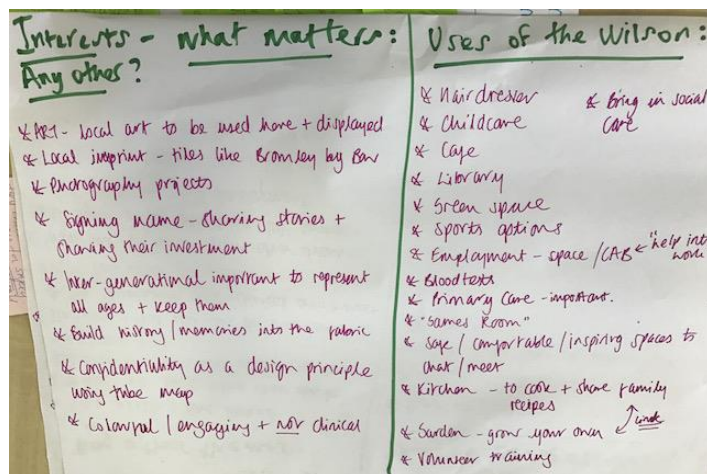 Interests - what matters:
Any other?
* ART - local art to be used here + displayed
* Local imprint - tiles like Bromley by Bow
* Photography projects
* Signing name - sharing stories +
sharing their investment
* Inter-generational important to represent
all ages + keep them
* Build history / memories into the fabric
* Confidentiality as a design principle
using tube map
* Colourful / engaging + not clinical
Uses of the Wilson:
* Hairdresser
* Bring in social
care
* Childcare
* Cafe
* Library
* Green space
* Sports options
* Employment - space / CAB ← "help into
work
* Bloodtests
* Primary Care - important.
* "Games Room"
* Safe / comfortable / inspiring spaces to
chat / meet
* Kitchen - to cook + share family
recipes
link
* Garden - grow your own
* Volunteer training